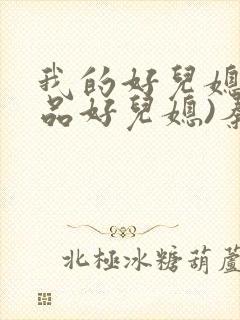 我的好兒媳
品好兒媳)
北極冰糖葫蘆